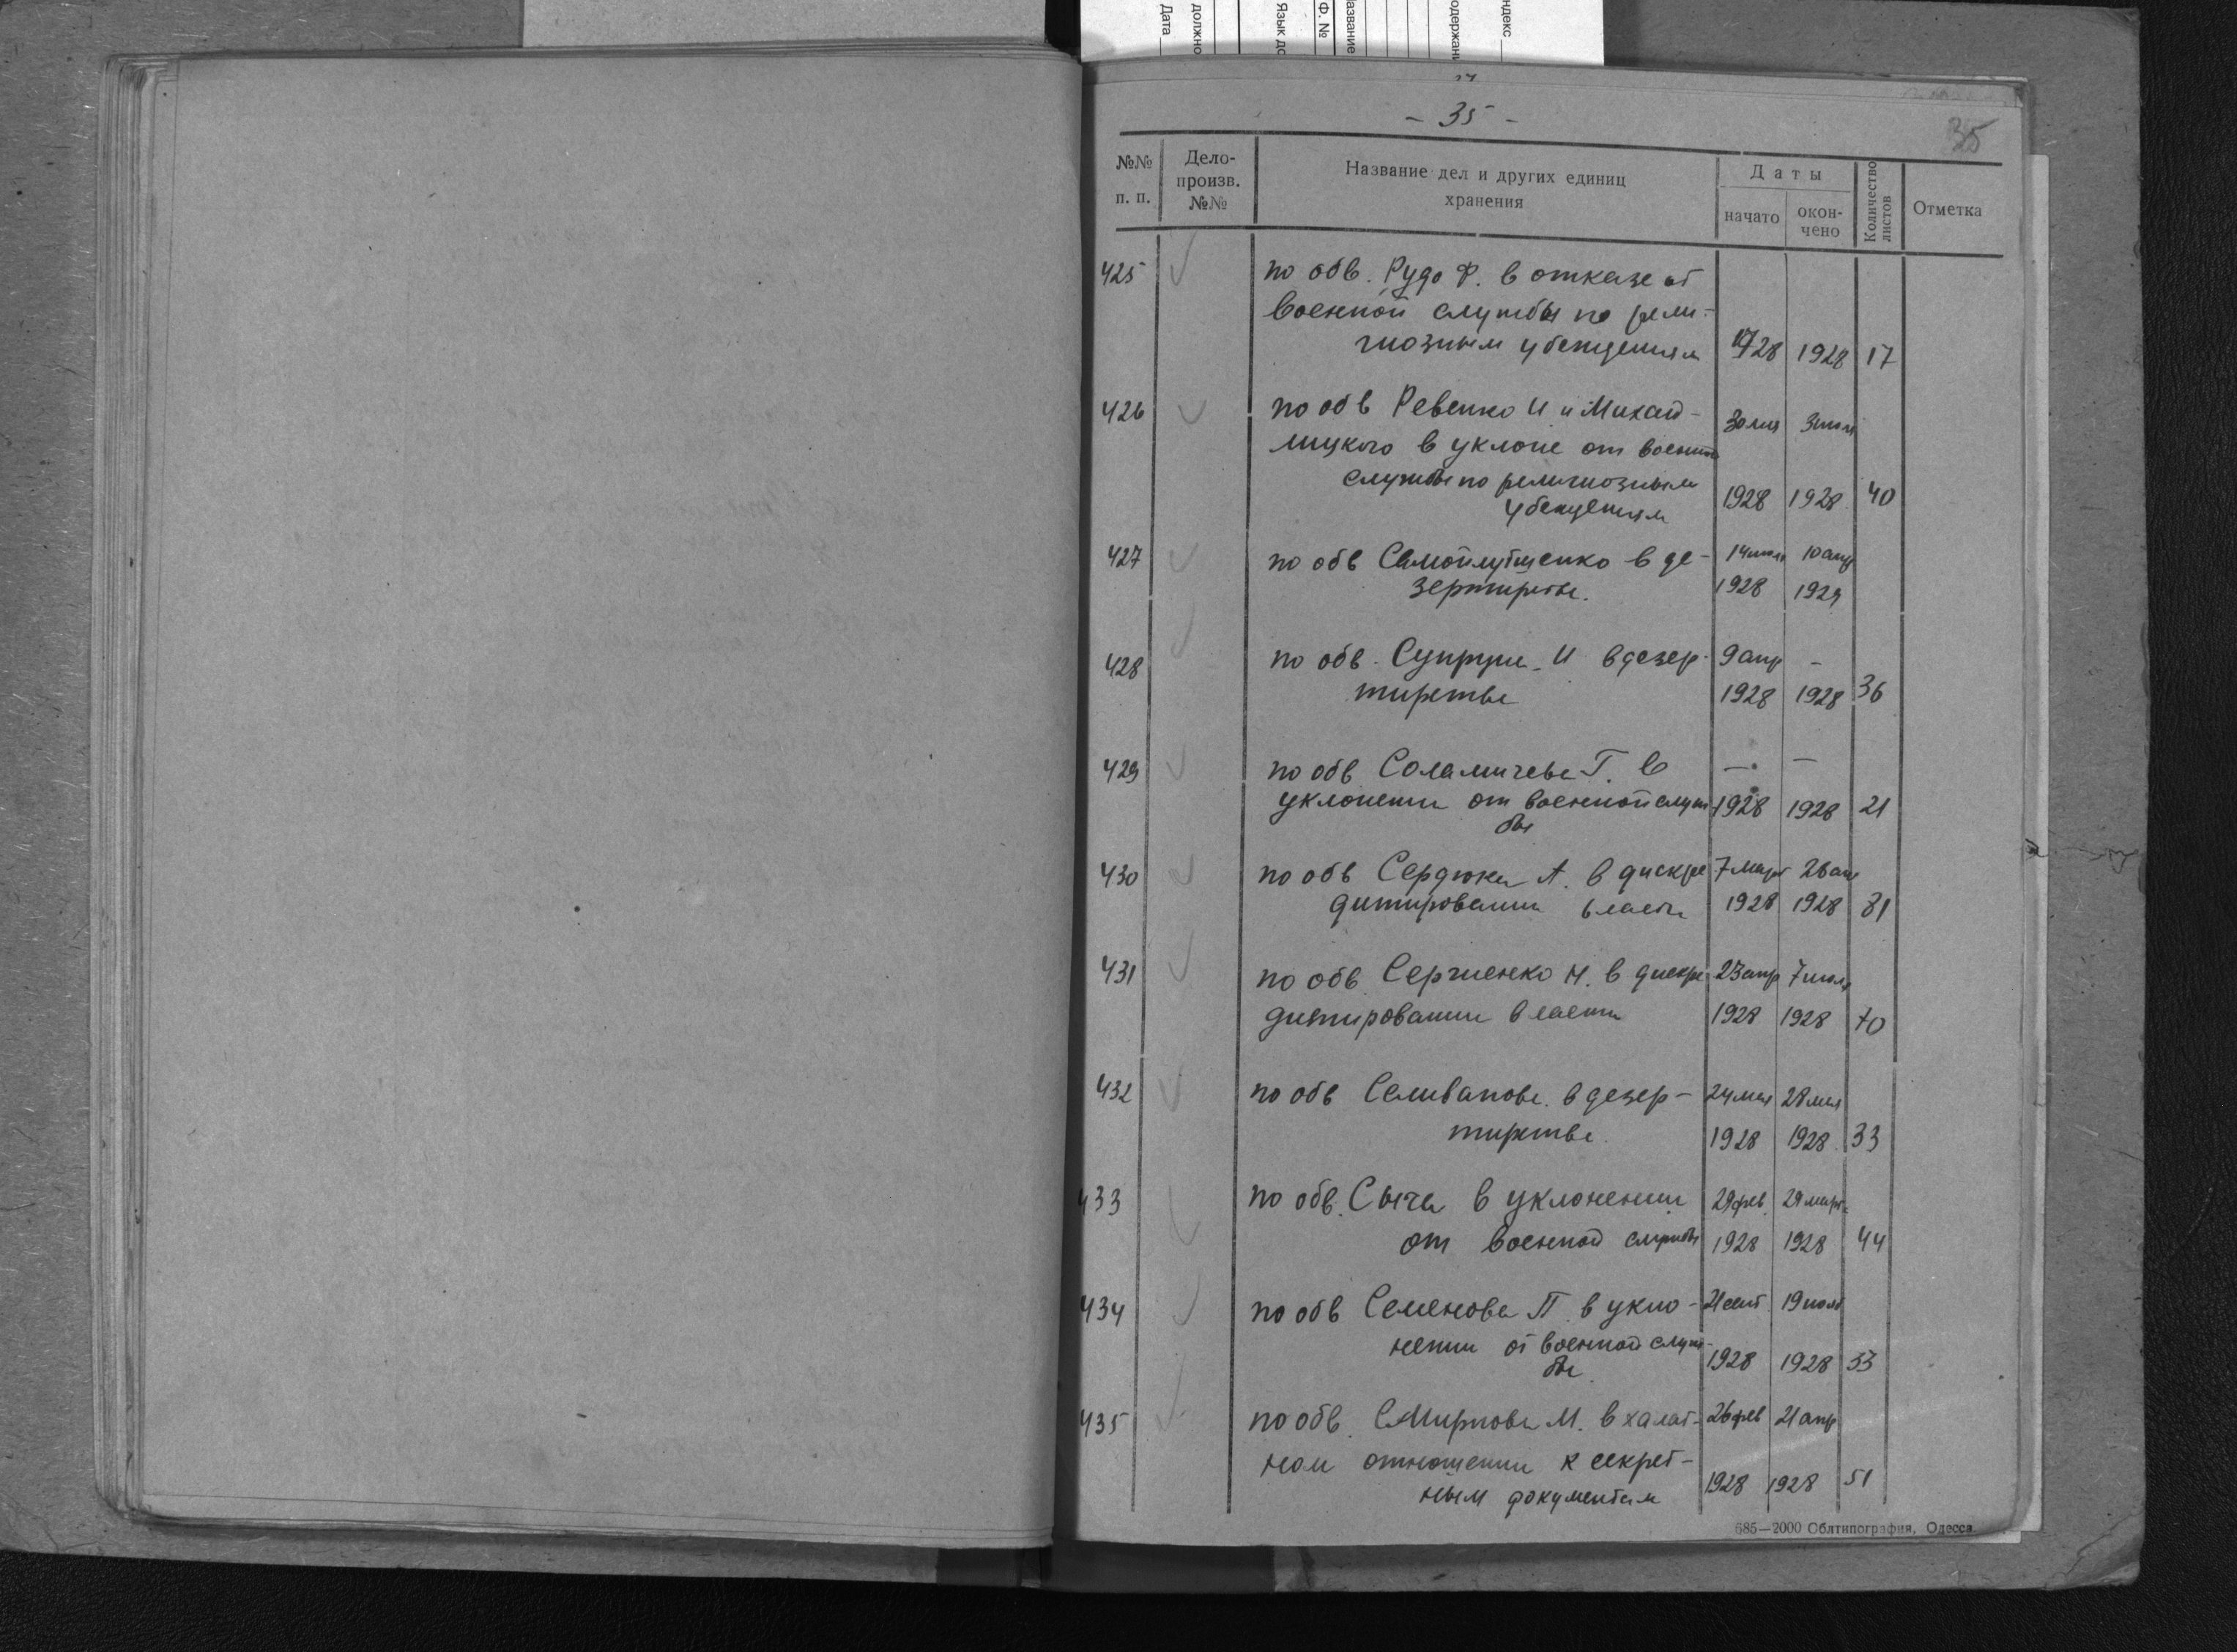 Дата
должно
Язык до
Ф. №
азвание
одержани
ндекс
- 35 -
35
№№ п. п.
Дело-произв. №№
Название дел и других единиц хранения
Даты
начато
окон-чено
Количество листов
Отметка
425 по обв. Рудо Ф. в отказе от
военной службы по рели-
гиозным убеждениям 1928 1928 17
426 по обв Ревенко И и Михай- 30 мая
лицкого в уклоне от военной
службы по религиозным 1928 1928 40
убеждениям
427 по обв в де- 14 июля 10 апр
зертирстве. 1928 1929
428 по обв. Супрун И в дезер- 9 апр -
тирстве 1928 1928 36
429 по обв Г. в — —
уклонении от военной служ- 1928 1928 21
бы
430 по обв Сердюка А. в дискре 7 март 26
дитировании власти 1928 1928 81
431 по обв Сергиенко Н. в дискре 23 апр 7 июля
дитировании власти 1928 1928 70
432 по обв Селиванова в дезер- 24 мая 28 мая
тирстве. 1928 1928 33
433 по обв. Сыча в уклонении 29 фев. 29 март
от военной службы 1928 1928 44
434 по обв Семенова П в укло- 21 сент 19 нояб
нении от военной служ- 1928 1928 33
бы
435 по обв. Смирнова М. в халат- 26 фев 21 апр
ном отношении к секрет-
ным документам 1928 1928 51
685—2000 Облтипография, Одесса